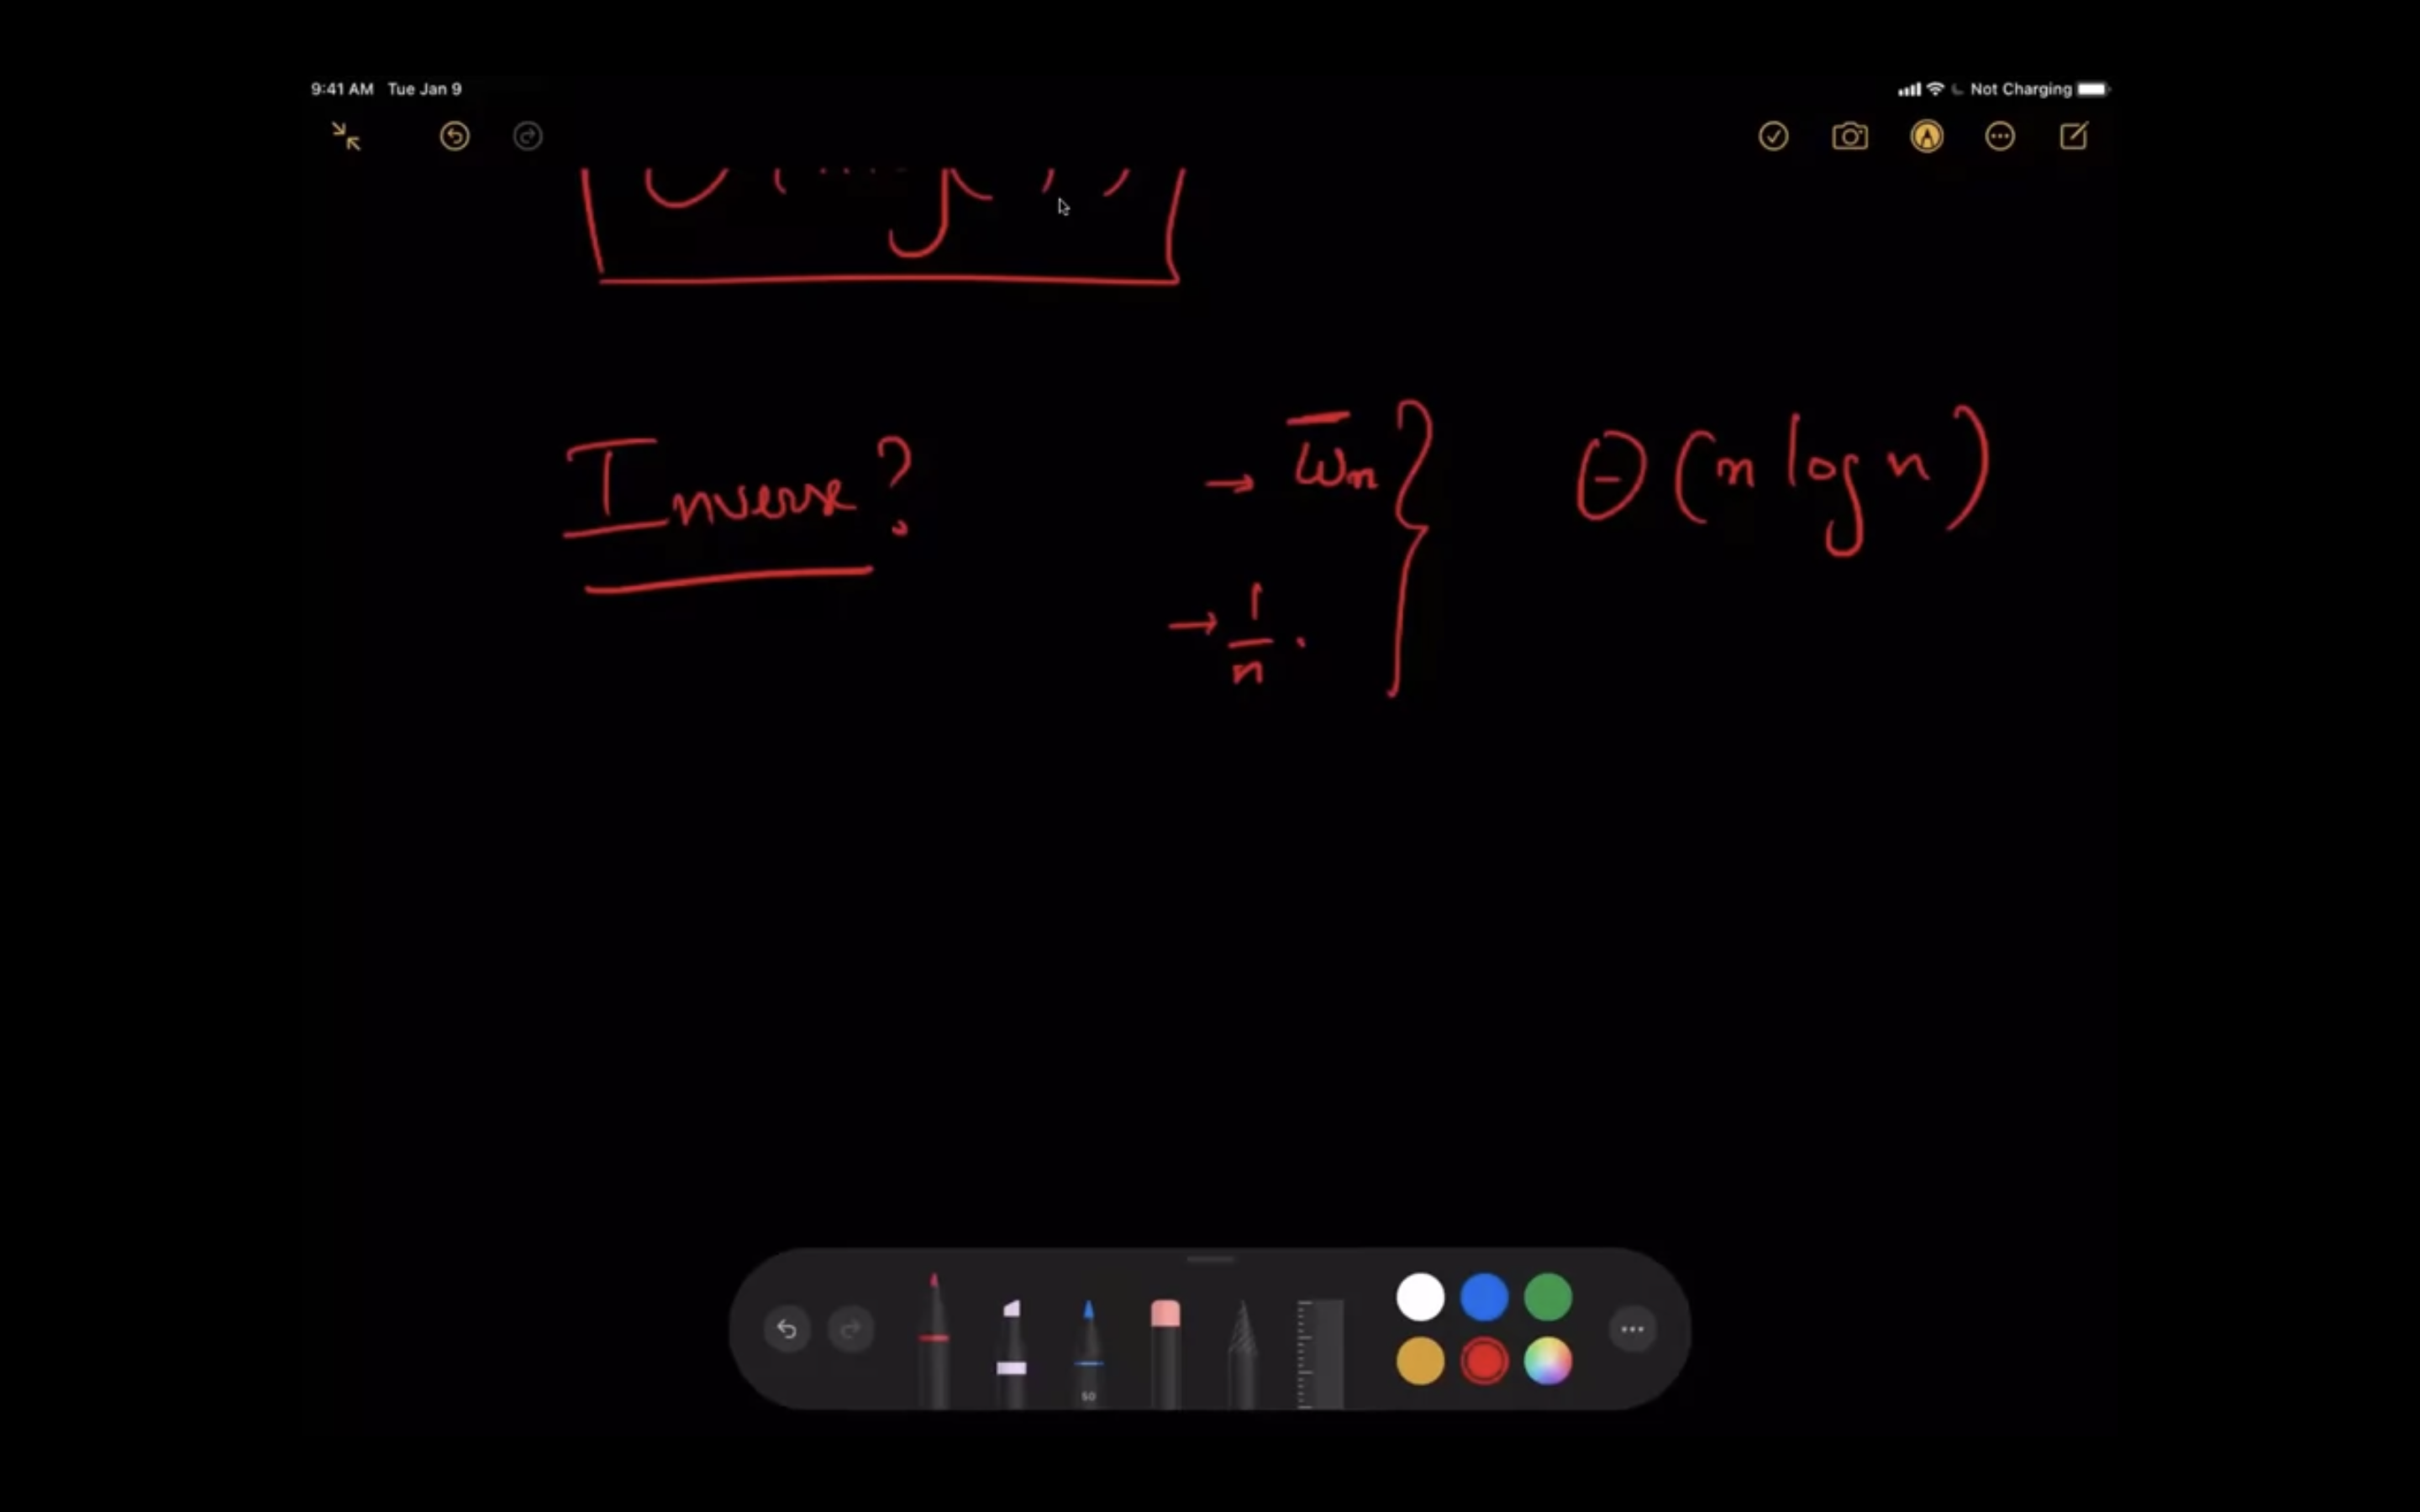 9:41 AM Tue Jan 9 Not Charging
Inverse? → ω̅n } Θ(n log n)
→ 1/n .
50